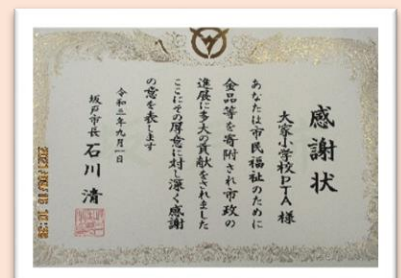 感謝状
大家小学校PTA 様
あなたは市民福祉のために
金品等を寄附され市政の
進展に多大の貢献をされました
ここにその厚意に対し深く感謝
の意を表します
令和三年九月一日
坂戸市長 石川 清